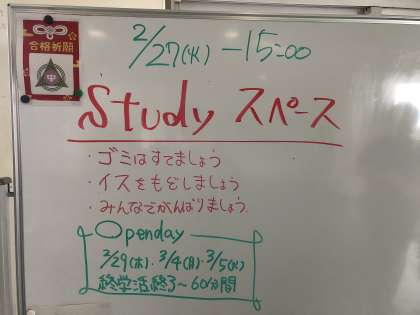 合格祈願
中
2/27(火) -15:00
Study スペース
・ゴミはすてましょう
・イスをもどしましょう
・みんなでがんばりましょう
Openday
2/29(木)・3/4(月)・3/5(火)
終学活終了〜60分間